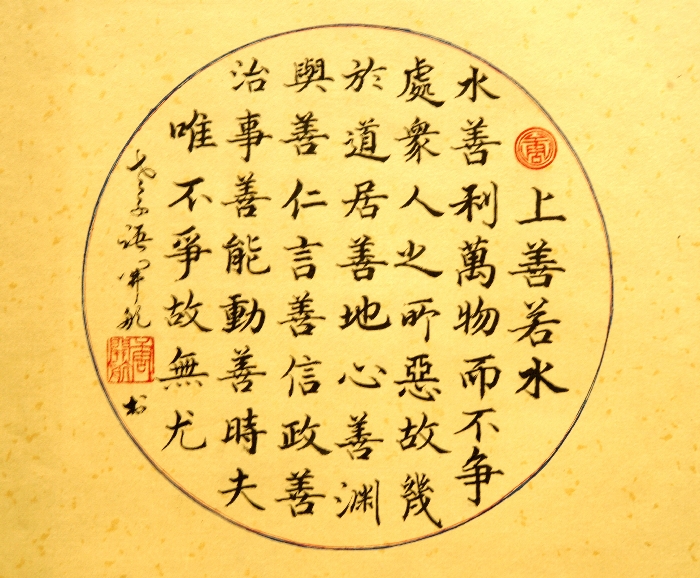 唐
上善若水
水善利萬物而不争
處衆人之所惡故幾
於道居善地心善渊
與善仁言善信政善
治事善能動善時夫
唯不爭故無尤
老子語開航
书